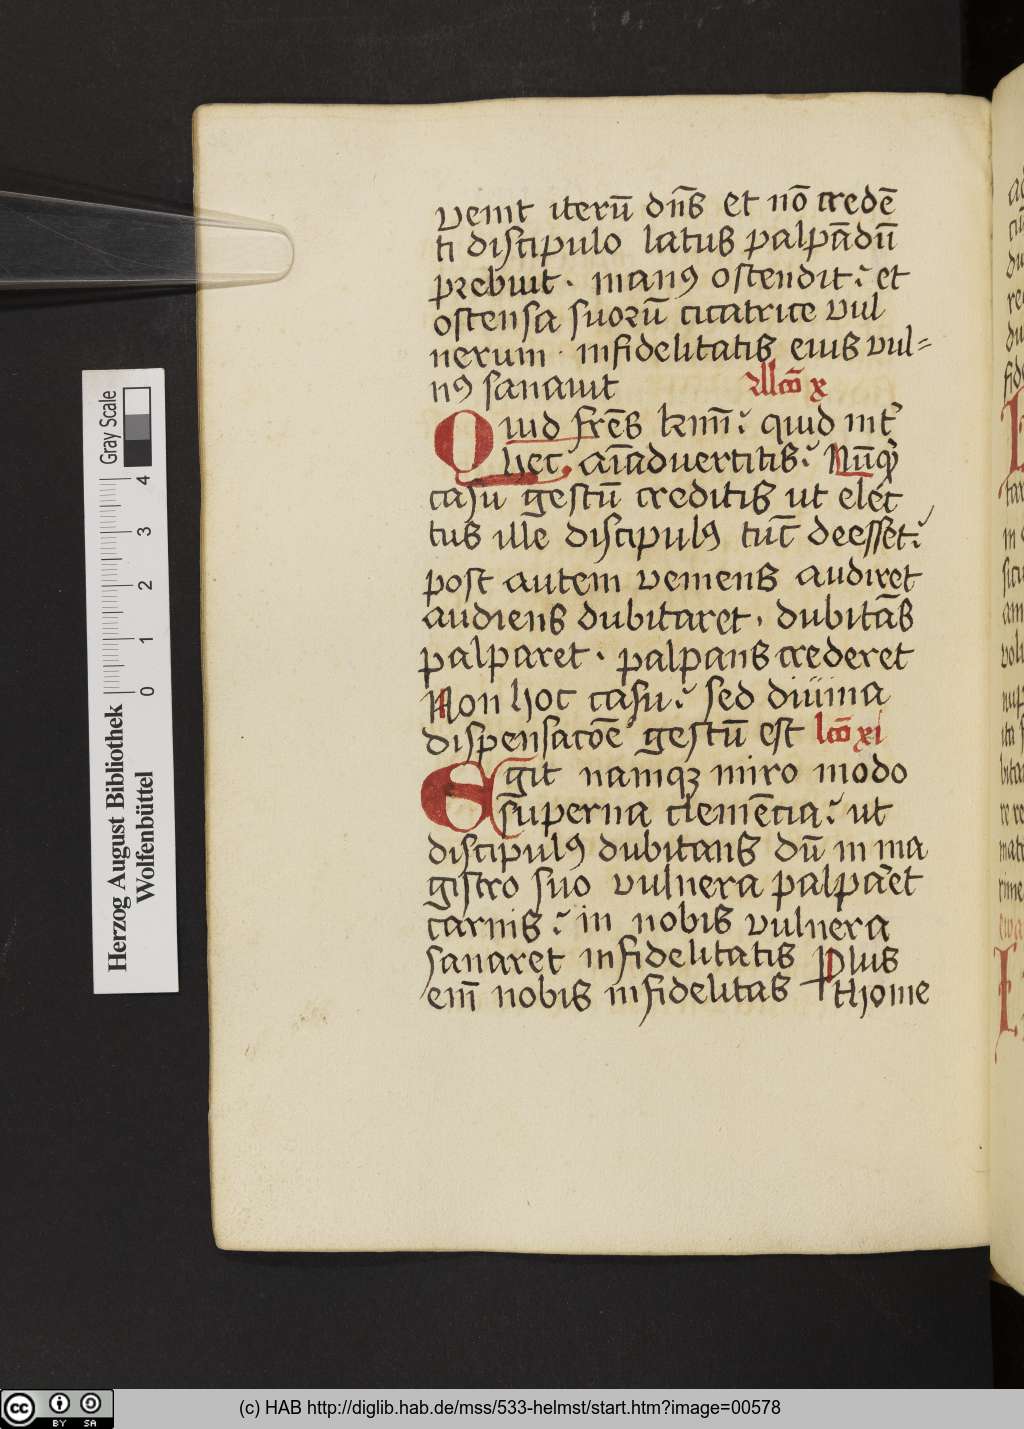 venit iterū dn̄s et nō credē
ti discipulo latus palpādū
prebuit · manꝰ ostendit et
ostensa suoꝝū cicatrice vul
nerum · infidelitatis eius vul=
nꝰ sanauit Lcō x
Quid frēs kmī quid int̉
hec aīaduertitis Nūq̉
casu gestū creditis ut elec
tus ille discipulꝰ tūc deesset
post autem veniens audiret
audiens dubitaret · dubitās
palparet · palpans crederet
Non hoc casu sed diuina
dispensacōe gestū est lcō xi
Egit namqꝫ miro modo
superna clemēcia ut
discipulꝰ dubitans dū in ma
gistro suo vulnera palpa̅et
carnis in nobis vulnera
sanaret infidelitatis Plus
eni̅ nobis infidelitas thome
Gray Scale
4 3 2 1 0
Herzog August Bibliothek
Wolfenbüttel
(c) HAB http://diglib.hab.de/mss/533-helmst/start.htm?image=00578
cc BY SA